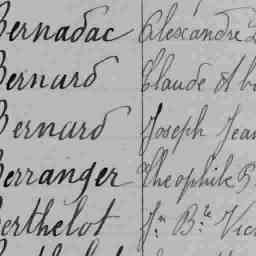 Bernadac Alexandre
Bernard Claude
Bernard Joseph Jean
Berranger Théophile
Berthelot Jn. Bte. Vict